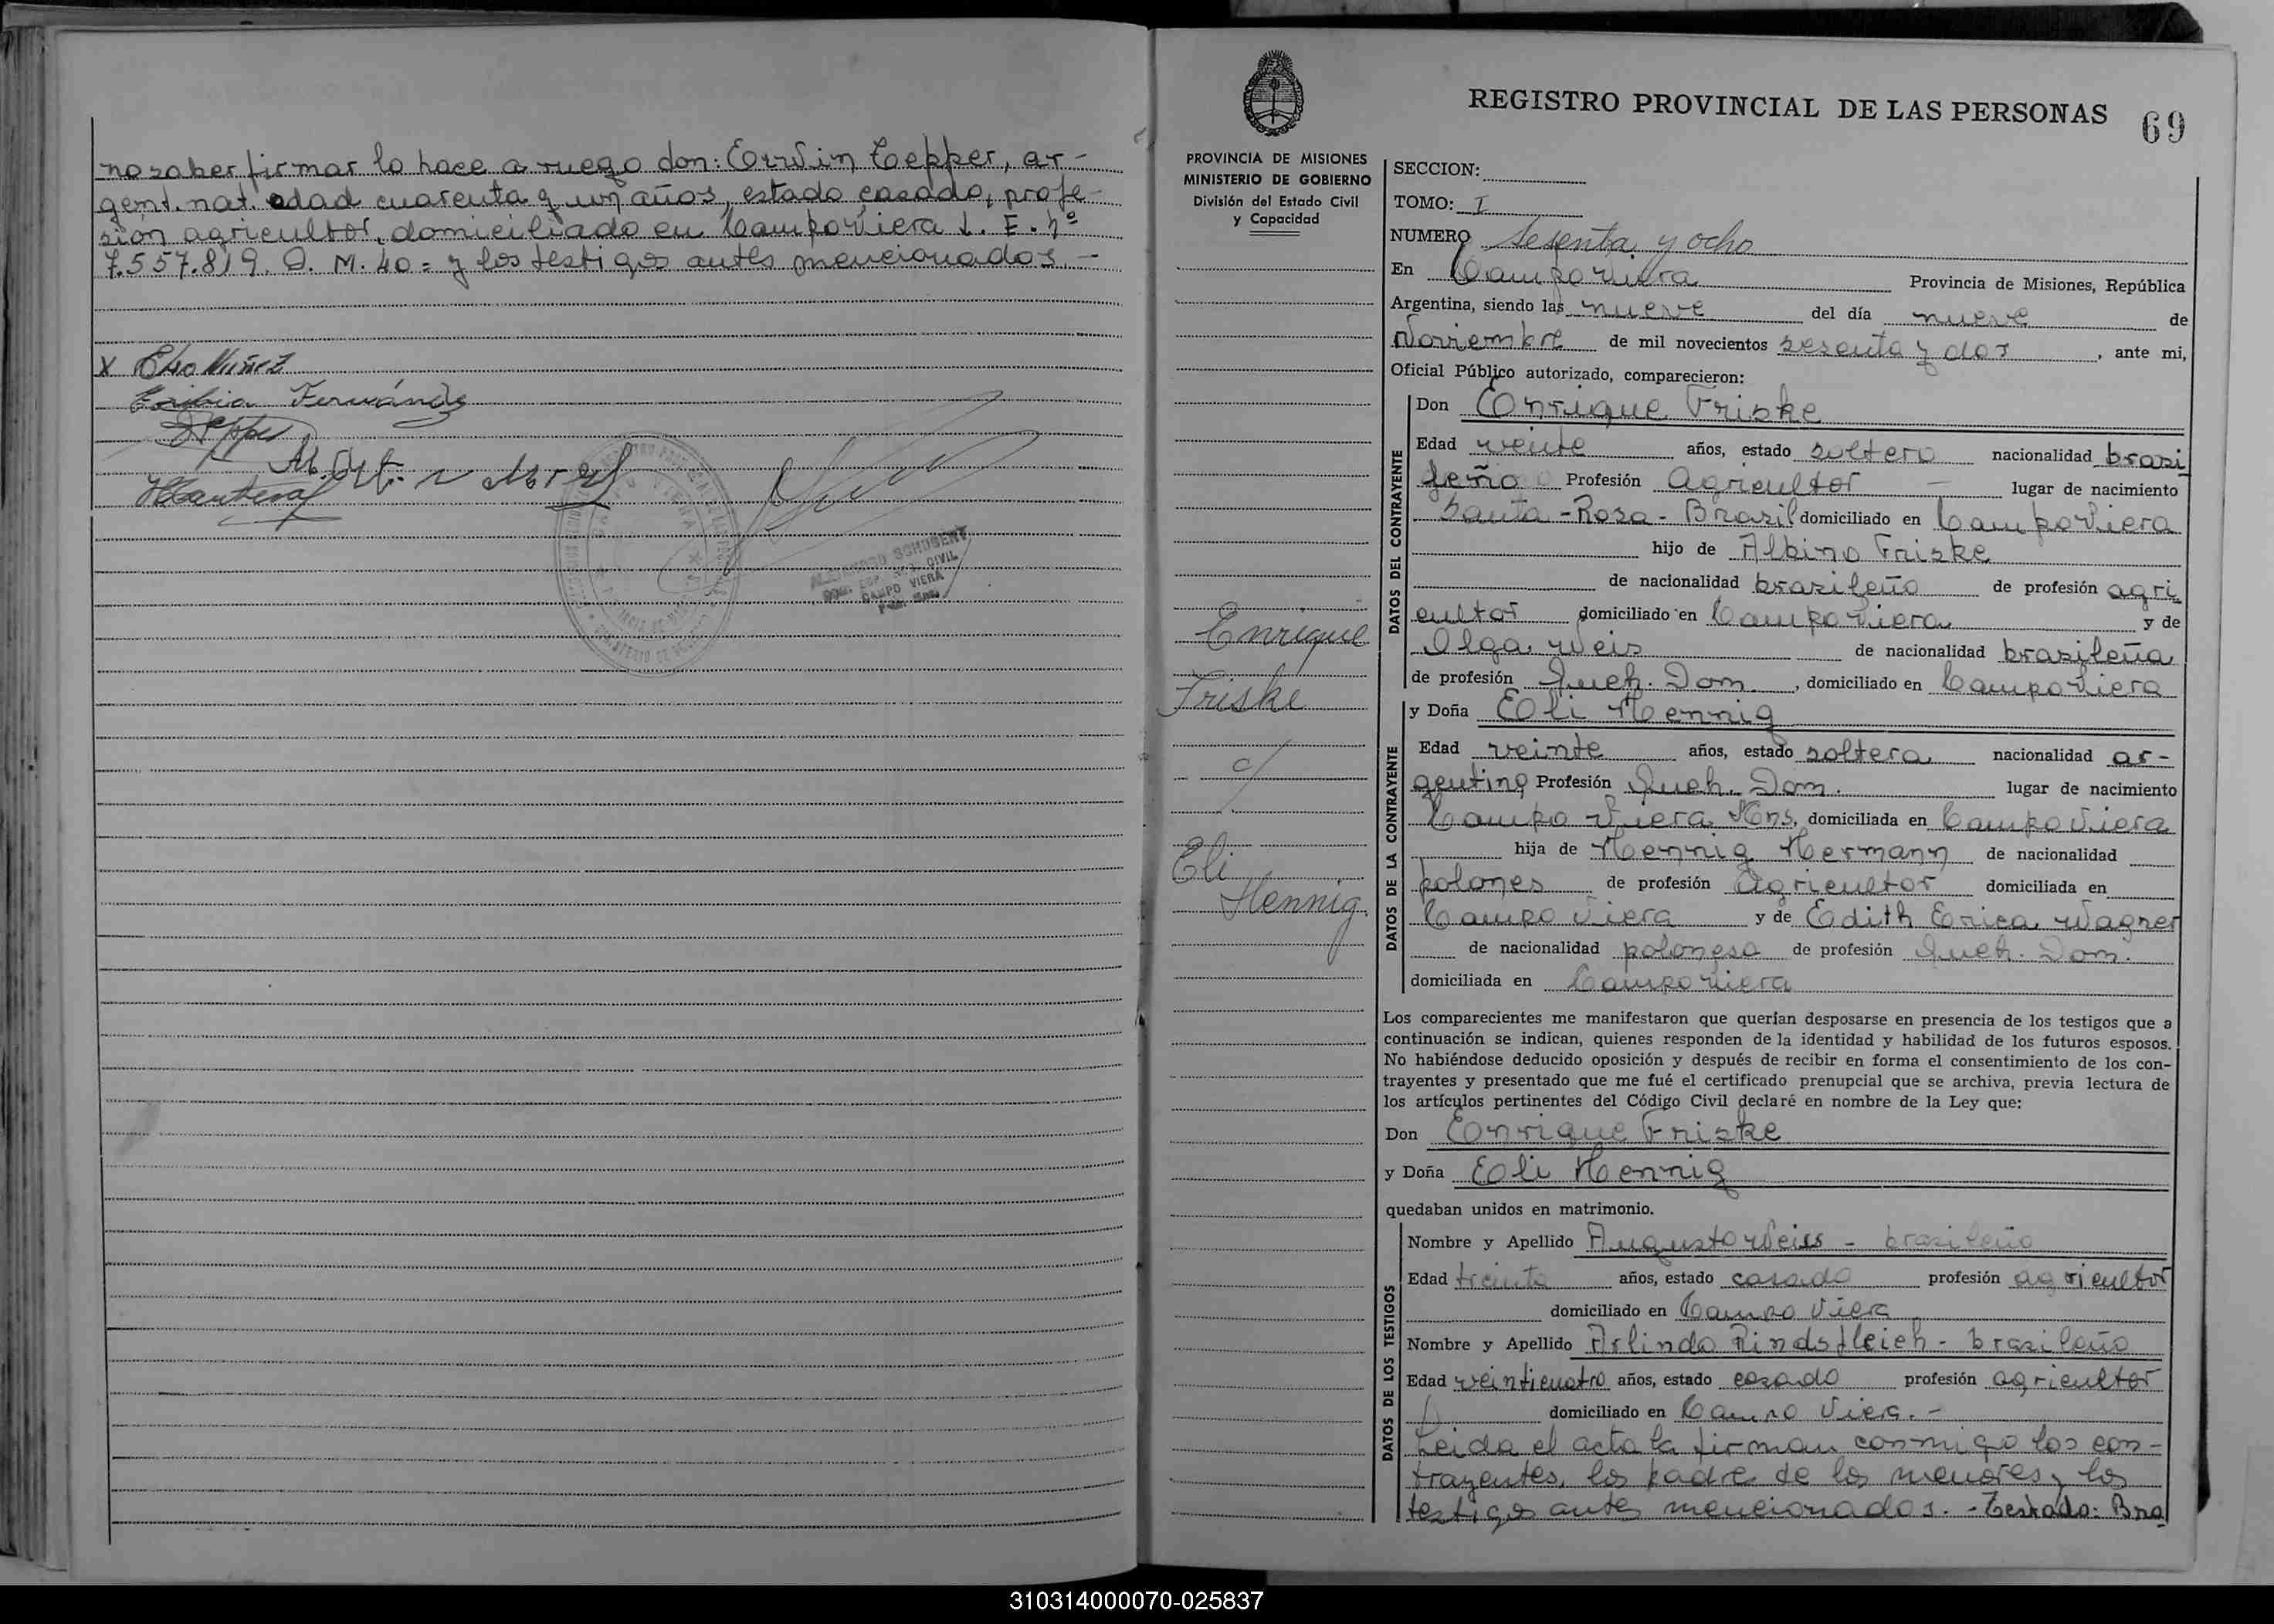 no saber firmar lo hace a ruego don: Erwin Tepper, ar-
gent. nat. edad cuarenta y un años, estado casado, profe-
sion agricultor, domiciliado en Campo Viera L. E. nº
7.557.819 D. M. 40 = y los testigos antes mencionados. -
x Elso Nuñez
Toribia Fernández
Tepper
CAMPO VIERA
REGISTRO PROVINCIAL DE LAS PERSONAS
69
PROVINCIA DE MISIONES
MINISTERIO DE GOBIERNO
División del Estado Civil
y Capacidad
Enrique
Friske
c/
Eli
Hennig
SECCION:
TOMO: I
NUMERO Sesenta y ocho
En Campo Viera Provincia de Misiones, República
Argentina, siendo las nueve del día nueve de
Noviembre de mil novecientos sesenta y dos, ante mi,
Oficial Público autorizado, comparecieron:
DATOS DEL CONTRAYENTE
Don Enrique Friske
Edad veinte años, estado soltero nacionalidad brasi
leño Profesión Agricultor - lugar de nacimiento
Santa-Rosa-Brasil domiciliado en Campo Viera
hijo de Albino Friske
de nacionalidad brasileño de profesión agri
cultor domiciliado en Campo Viera y de
Olga Weis de nacionalidad brasileña
de profesión Queh. Dom., domiciliado en Campo Viera
DATOS DE LA CONTRAYENTE
y Doña Eli Hennig
Edad veinte años, estado soltera nacionalidad ar-
gentina Profesión Queh. Dom. lugar de nacimiento
Campo Viera Mns, domiciliada en Campo Viera
hija de Hennig Hermann de nacionalidad
polones de profesión Agricultor domiciliada en
Campo Viera y de Edith Erica Wagner
de nacionalidad polonesa de profesión Queh. Dom.
domiciliada en Campo Viera
Los comparecientes me manifestaron que querían desposarse en presencia de los testigos que a
continuación se indican, quienes responden de la identidad y habilidad de los futuros esposos.
No habiéndose deducido oposición y después de recibir en forma el consentimiento de los con-
trayentes y presentado que me fué el certificado prenupcial que se archiva, previa lectura de
los artículos pertinentes del Código Civil declaré en nombre de la Ley que:
Don Enrique Friske
y Doña Eli Hennig
quedaban unidos en matrimonio.
DATOS DE LOS TESTIGOS
Nombre y Apellido Augusto Weiss - brasileño
Edad treinta años, estado casado profesión agricultor
domiciliado en Campo Viera
Nombre y Apellido Arlindo Rindsfleich - brasileño
Edad veinticuatro años, estado casado profesión agricultor
domiciliado en Campo Viera. -
Leida el acta la firman conmigo los con-
trayentes, los padres de los menores y los
testigos antes mencionados. - Testado: Bra
310314000070-025837